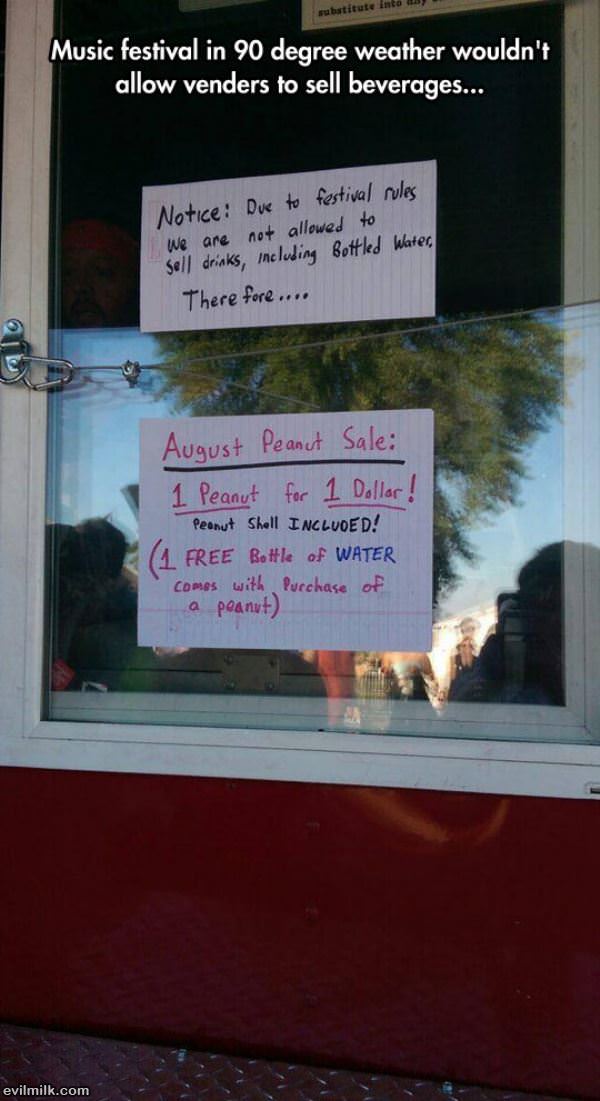 substitute into any
Music festival in 90 degree weather wouldn't
allow venders to sell beverages...
Notice: Due to festival rules
we are not allowed to
sell drinks, including Bottled Water,
Therefore....
August Peanut Sale:
1 Peanut for 1 Dollar!
Peanut Shell INCLUDED!
(1 FREE Bottle of WATER
comes with Purchase of
a peanut)
evilmilk.com